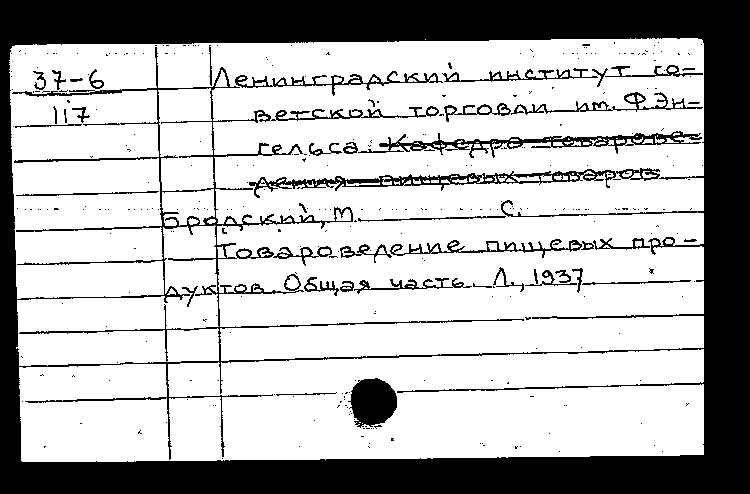 37-6
117
Ленинградский институт со-
ветской торговли им. Ф. Эн-
гельса. Кафедра товарове-
дения пищевых товаров
Бродский, М. С.
Товароведение пищевых про-
дуктов. Общая часть. Л., 1937